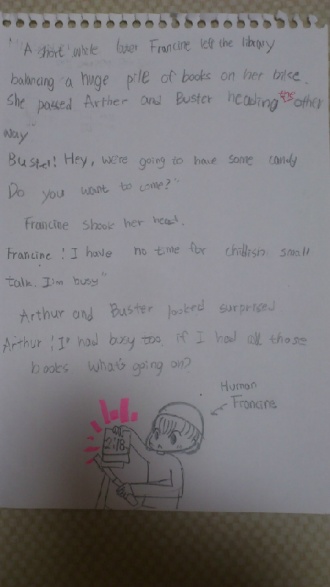 "A short while later Francine left the library
balancing a huge pile of books on her bike.
She passed Arther and Buster heading to other
way"
Buster! Hey, we're going to have some candy
Do you want to come?"
Francine shook her head.
Francine: I have no time for childish small
talk. I'm busy"
Arthur and Buster looked surprised
Arthur: I'd had busy too, if I had all those
books what's going on?
Human
Francine